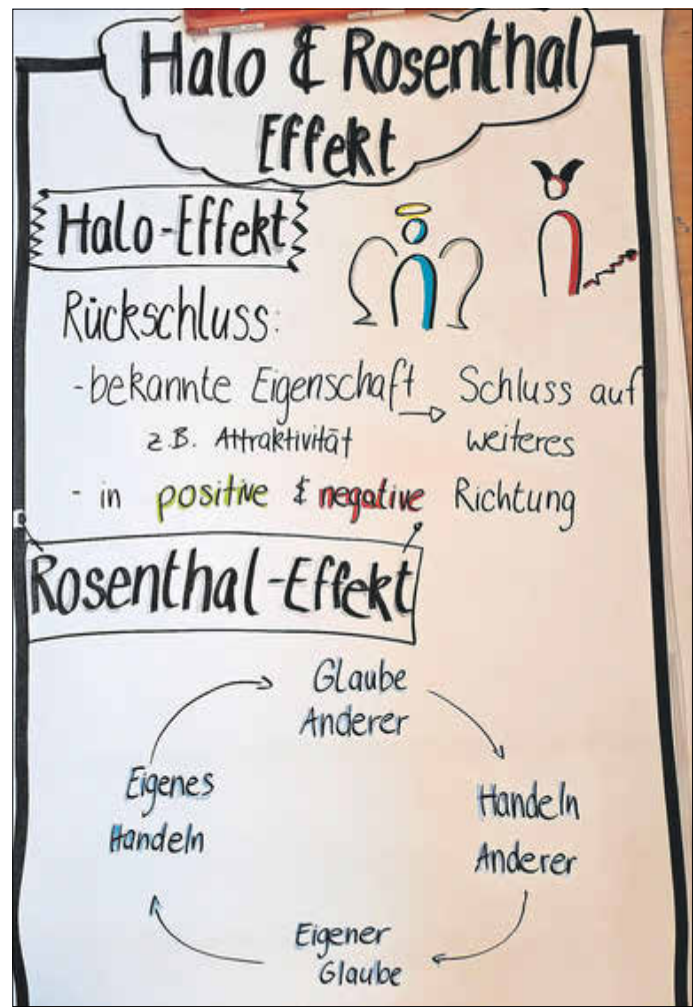 Halo & Rosenthal
Effekt
Halo-Effekt
Rückschluss:
- bekannte Eigenschaft → Schluss auf
z.B. Attraktivität weiteres
- in positive & negative Richtung
Rosenthal-Effekt
Glaube
Anderer
Handeln
Anderer
Eigener
Glaube
Eigenes
Handeln